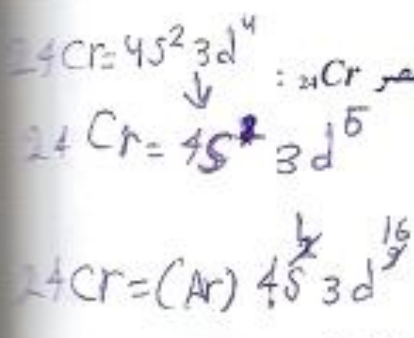 24Cr= 4s² 3d⁴
: 24Cr
↓
24 Cr= 4s 3d⁵
24Cr=(Ar) 4s 3d